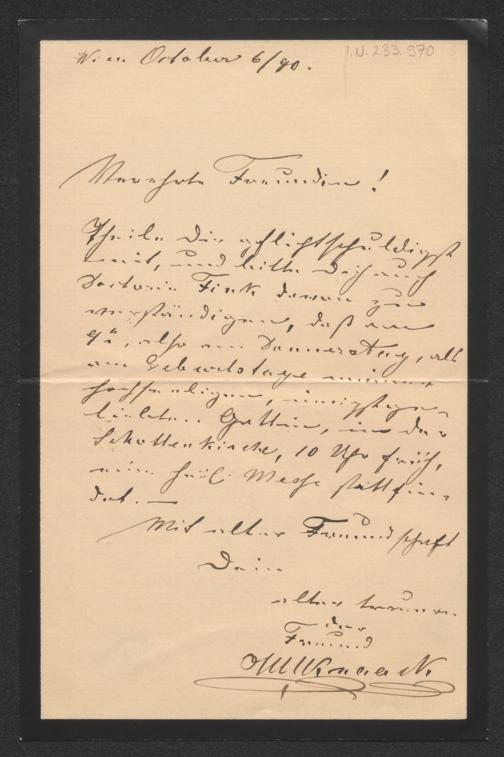 Wien October 6/90.
I.N. 233.970
Verehrte Freundin!
Theile Dir pflichtschuldigst
mit, und bitte Dich auch
Doctorin Fink davon zu
verständigen, daß am
9t, also am Donnerstag, als
am Geburtstage meiner
hochseeligen, innigstge-
liebten Gattin, in der
Schottenkirche, 10 Uhr früh,
eine heil. Messe stattfin-
det. —
Mit alter Freundschaft
Dein
alter trauern-
der
Freund
Knaack